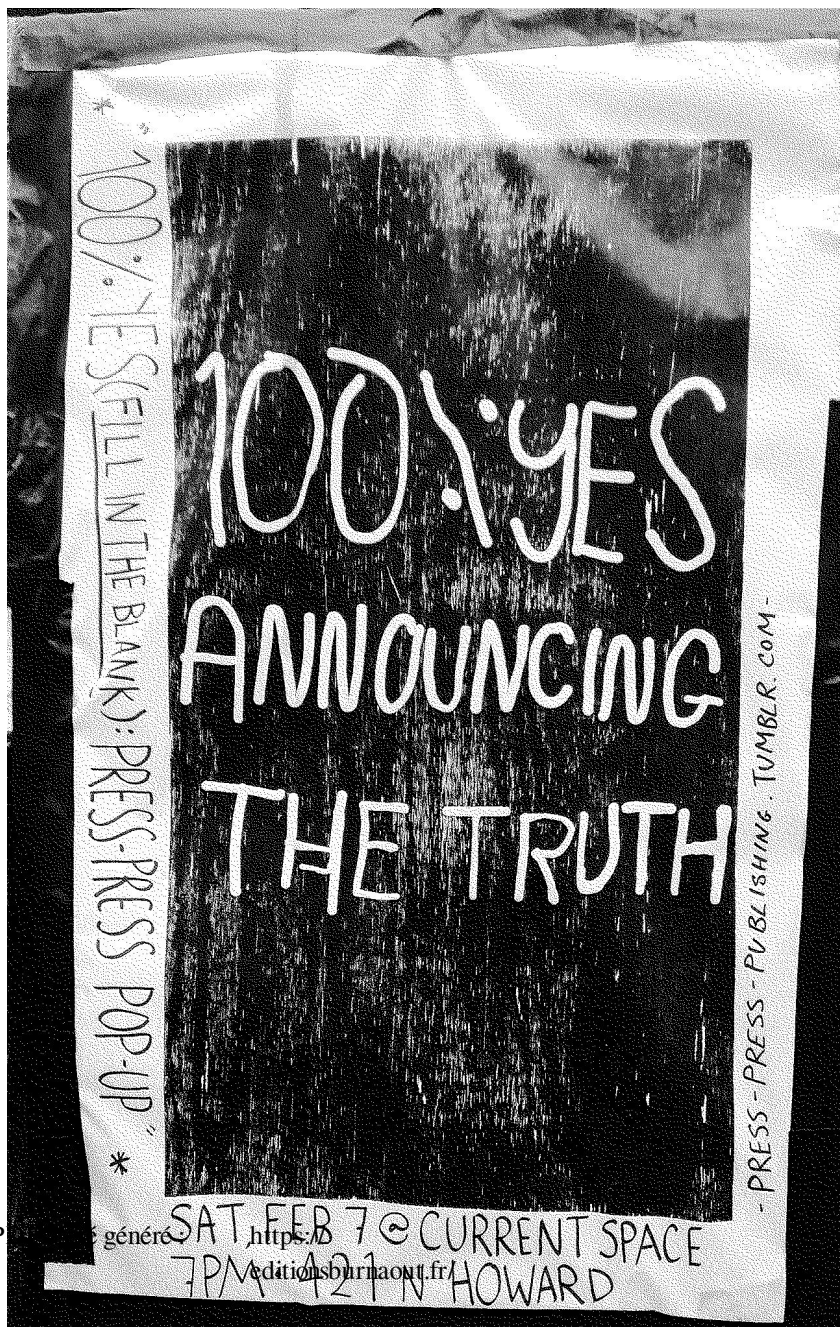 * "100% YES (FILL IN THE BLANK): PRESS-PRESS POP-UP" *
100% YES
ANNOUNCING
THE TRUTH
- PRESS - PRESS - PUBLISHING . TUMBLR. COM -
SAT, FEB 7 @ CURRENT SPACE
7PM · 421 N HOWARD
généré : https://
editionsburnaout.fr/